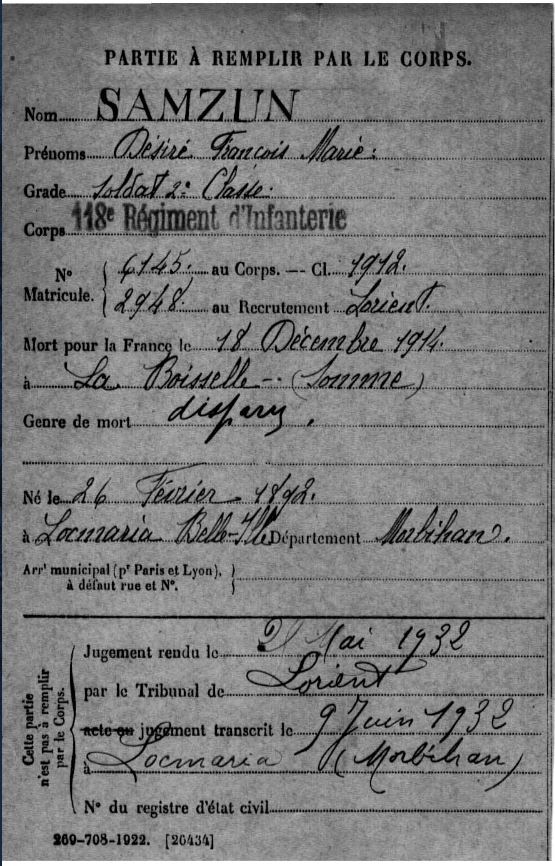 PARTIE À REMPLIR PAR LE CORPS.
Nom SAMZUN
Prénoms Désiré François Marie.
Grade Soldat 2e Classe.
Corps 118e Régiment d'Infanterie
N° Matricule. 6145. au Corps. — Cl. 1912.
2948. au Recrutement Lorient.
Mort pour la France le 18 Décembre 1914.
à La Boisselle - (Somme)
Genre de mort disparu.
Né le 26 Février - 1892.
à Locmaria Belle-Ille Département Morbihan.
Arrt municipal (pr Paris et Lyon),
à défaut rue et N°.
Cette partie n'est pas à remplir par le Corps.
Jugement rendu le Mai 1932
par le Tribunal de Lorient
acte ou jugement transcrit le 9 Juin 1932
à Locmaria (Morbihan)
N° du registre d'état civil
269-708-1922. [26434]